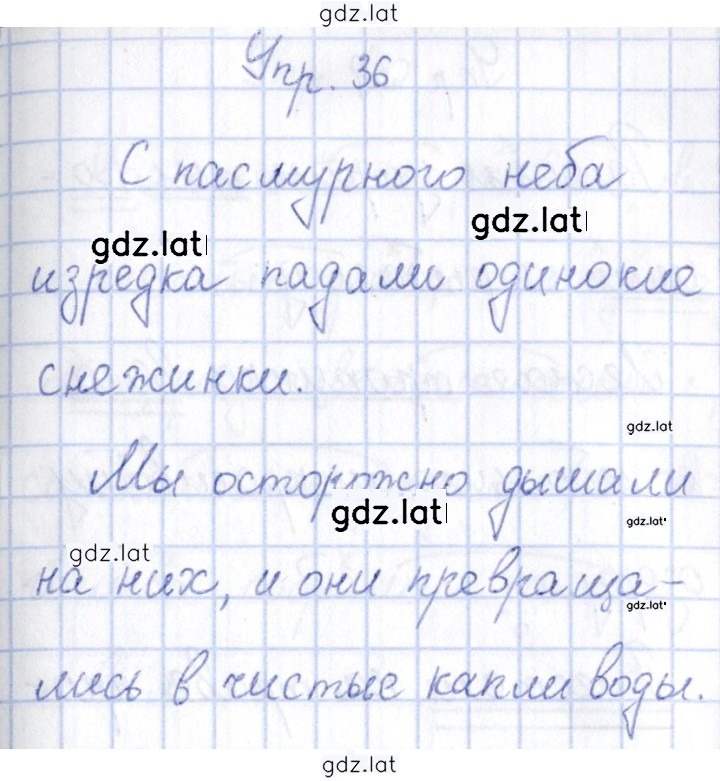 gdz.lat
Упр. 36
С пасмурного неба
gdz.lat
gdz.lat
изредка падали одинокие
снежинки.
gdz.lat
Мы осторожно дышали
gdz.lat
gdz.lat
gdz.lat
на них, и они превраща-
gdz.lat
лись в чистые капли воды.
gdz.lat